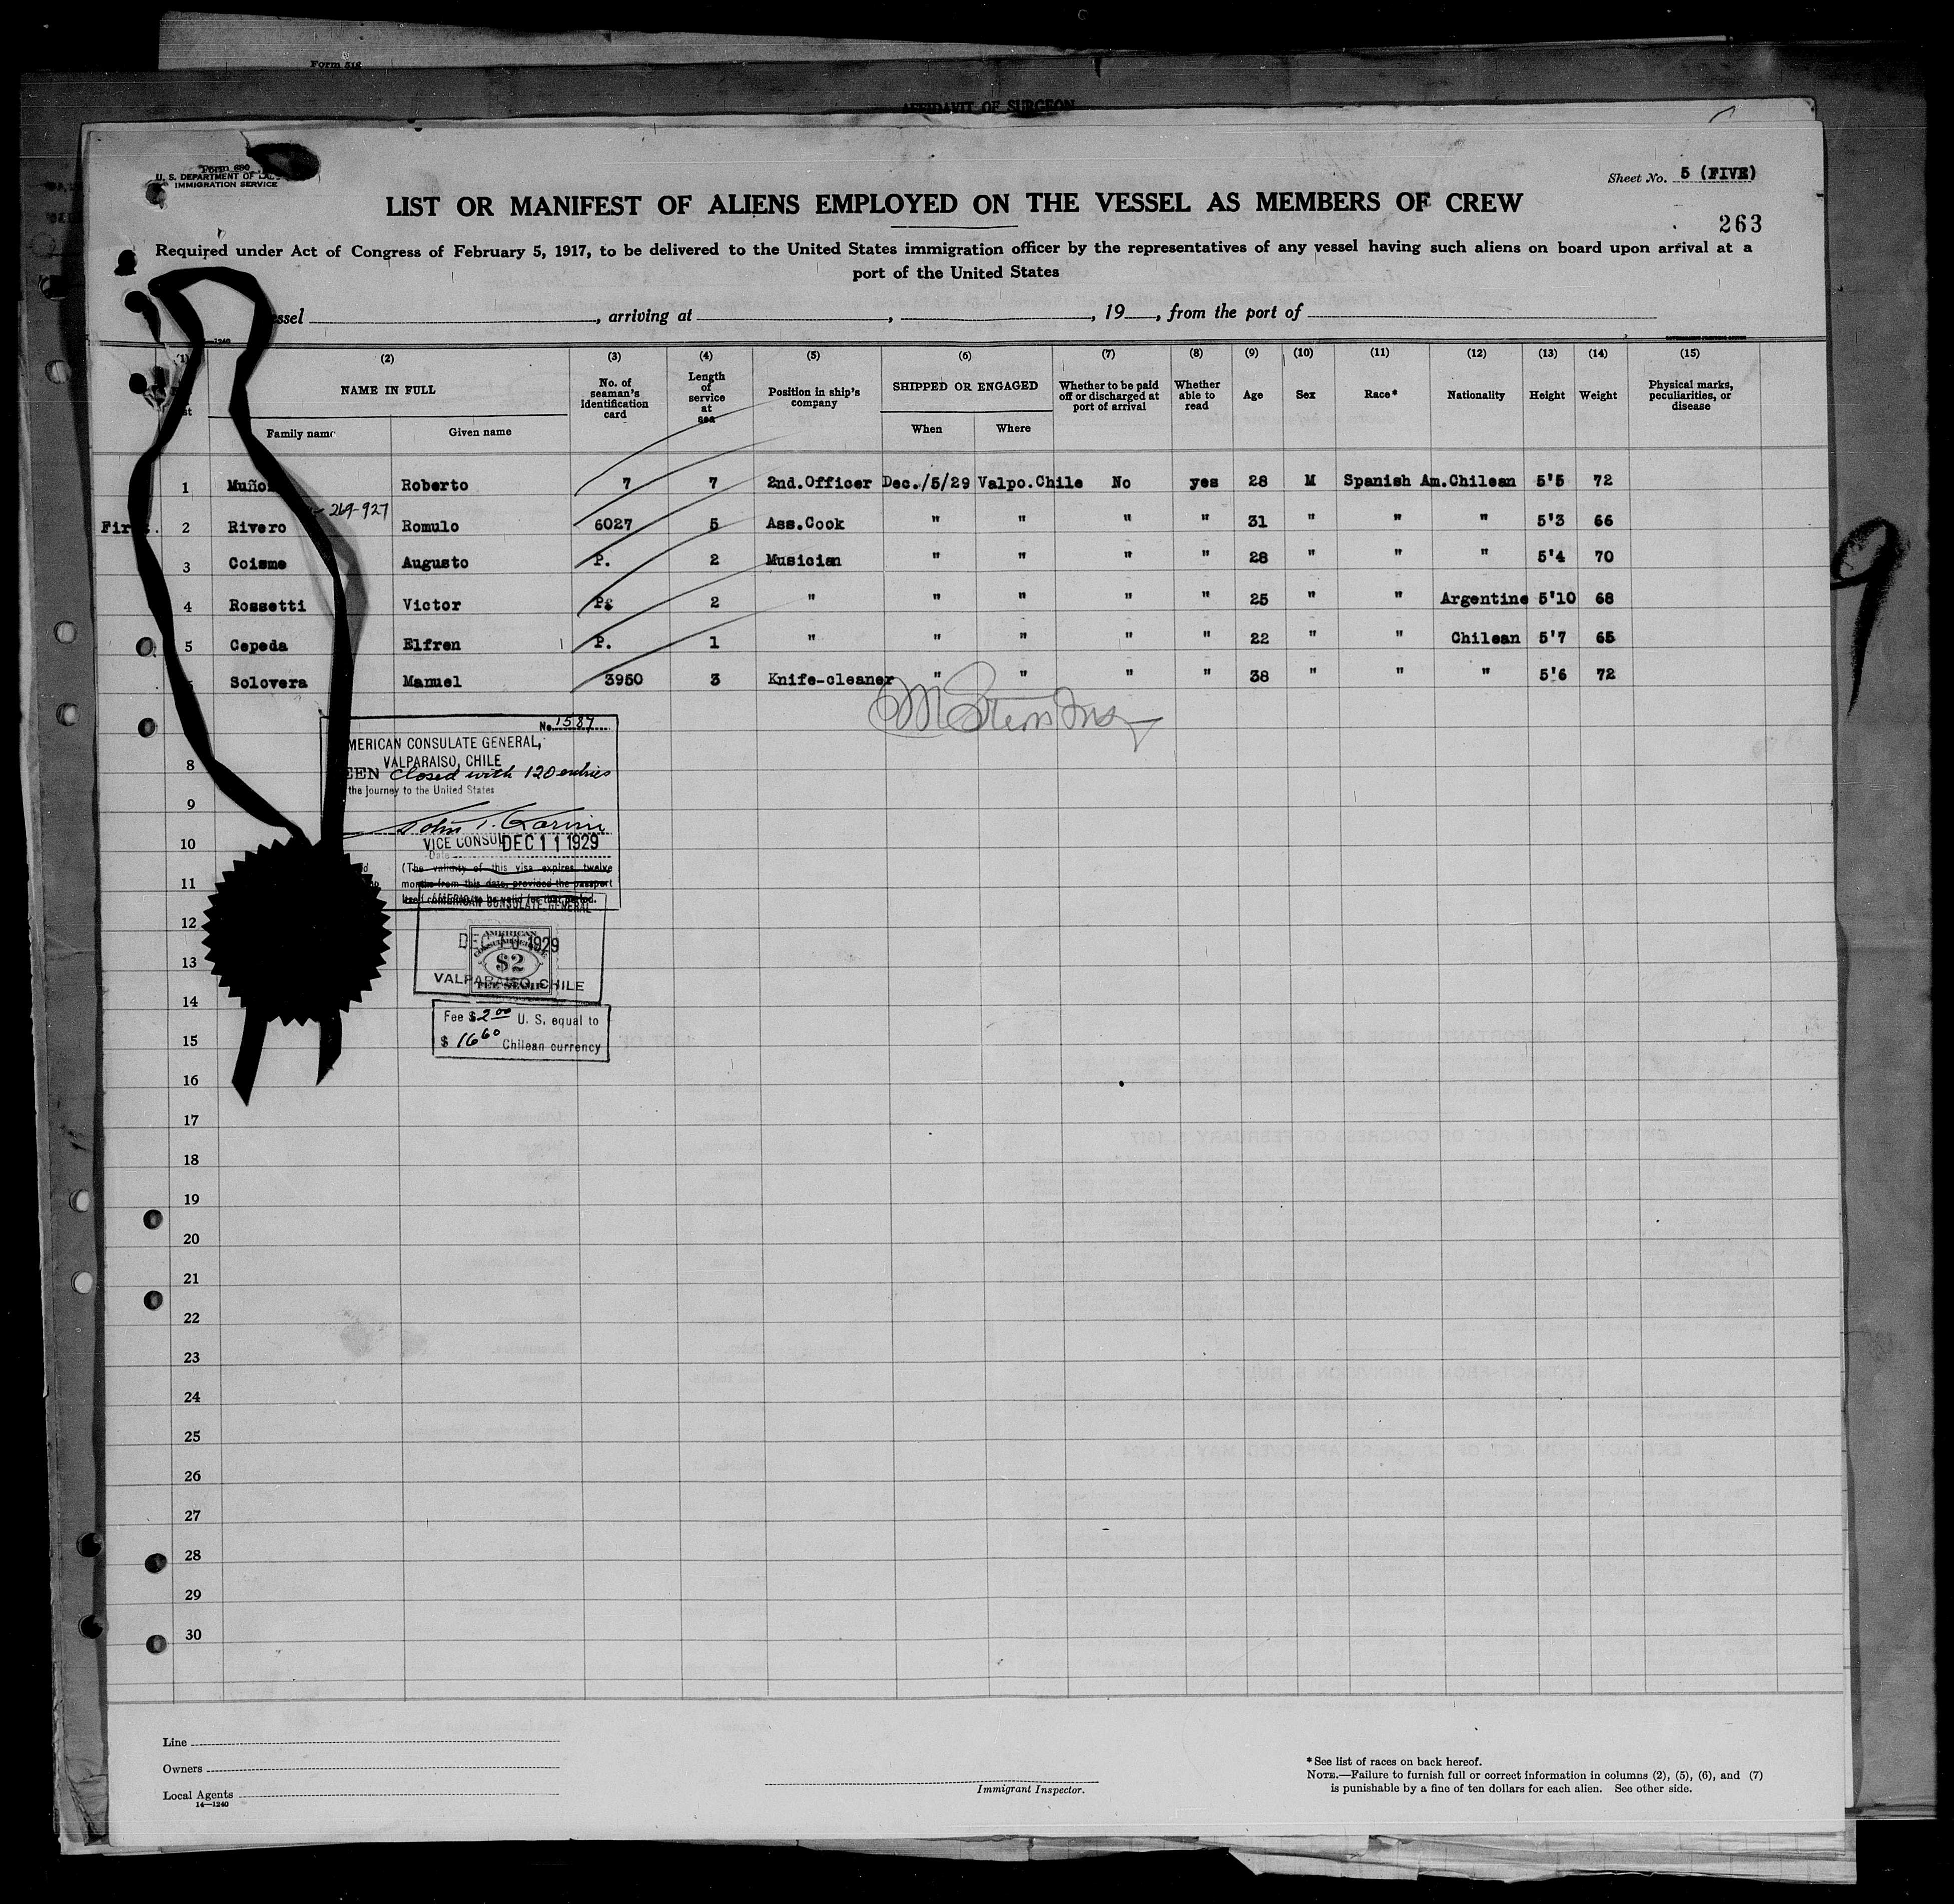 Form 518
AFFIDAVIT OF SURGEON
Form 680
U. S. DEPARTMENT OF
IMMIGRATION SERVICE
Sheet No. 5 (FIVE)
LIST OR MANIFEST OF ALIENS EMPLOYED ON THE VESSEL AS MEMBERS OF CREW
263
Required under Act of Congress of February 5, 1917, to be delivered to the United States immigration officer by the representatives of any vessel having such aliens on board upon arrival at a
port of the United States
ssel , arriving at , , 19 , from the port of
(1) (2) (3) (4) (5) (6) (7) (8) (9) (10) (11) (12) (13) (14) (15)
NAME IN FULL No. of seaman's identification card Length of service at sea Position in ship's company SHIPPED OR ENGAGED Whether to be paid off or discharged at port of arrival Whether able to read Age Sex Race* Nationality Height Weight Physical marks, peculiarities, or disease
Family name Given name When Where
1 Muño Roberto 7 7 2nd.Officer Dec./5/29 Valpo.Chile No yes 28 M Spanish Am. Chilean 5'5 72
269-927
2 Rivero Romulo 6027 5 Ass.Cook " " " " 31 " " " 5'3 66
3 Coisme Augusto P. 2 Musician " " " " 28 " " " 5'4 70
4 Rossetti Victor P. 2 " " " " " 25 " " Argentine 5'10 68
5 Cepeda Elfren P. 1 " " " " " 22 " " Chilean 5'7 65
Solovera Manuel 3950 3 Knife-cleaner " " " " 38 " " " 5'6 72
No. 1587
MERICAN CONSULATE GENERAL,
VALPARAISO, CHILE
EEN Closed with 120 entries
the journey to the United States
VICE CONSUL DEC 11 1929
Date
(The validity of this visa expires twelve
months from this date, provided the passport
AMERICAN CONSULATE GENERAL
DEC 1929
AMERICAN
$2
FEE STAMP
VALPARAISO, CHILE
Fee $ 2 00 U. S. equal to
$ 16 60 Chilean currency
8
9
10
11
12
13
14
15
16
17
18
19
20
21
22
23
24
25
26
27
28
29
30
9
Line
Owners
Local Agents
14—1240
Immigrant Inspector.
* See list of races on back hereof.
NOTE.—Failure to furnish full or correct information in columns (2), (5), (6), and (7)
is punishable by a fine of ten dollars for each alien. See other side.